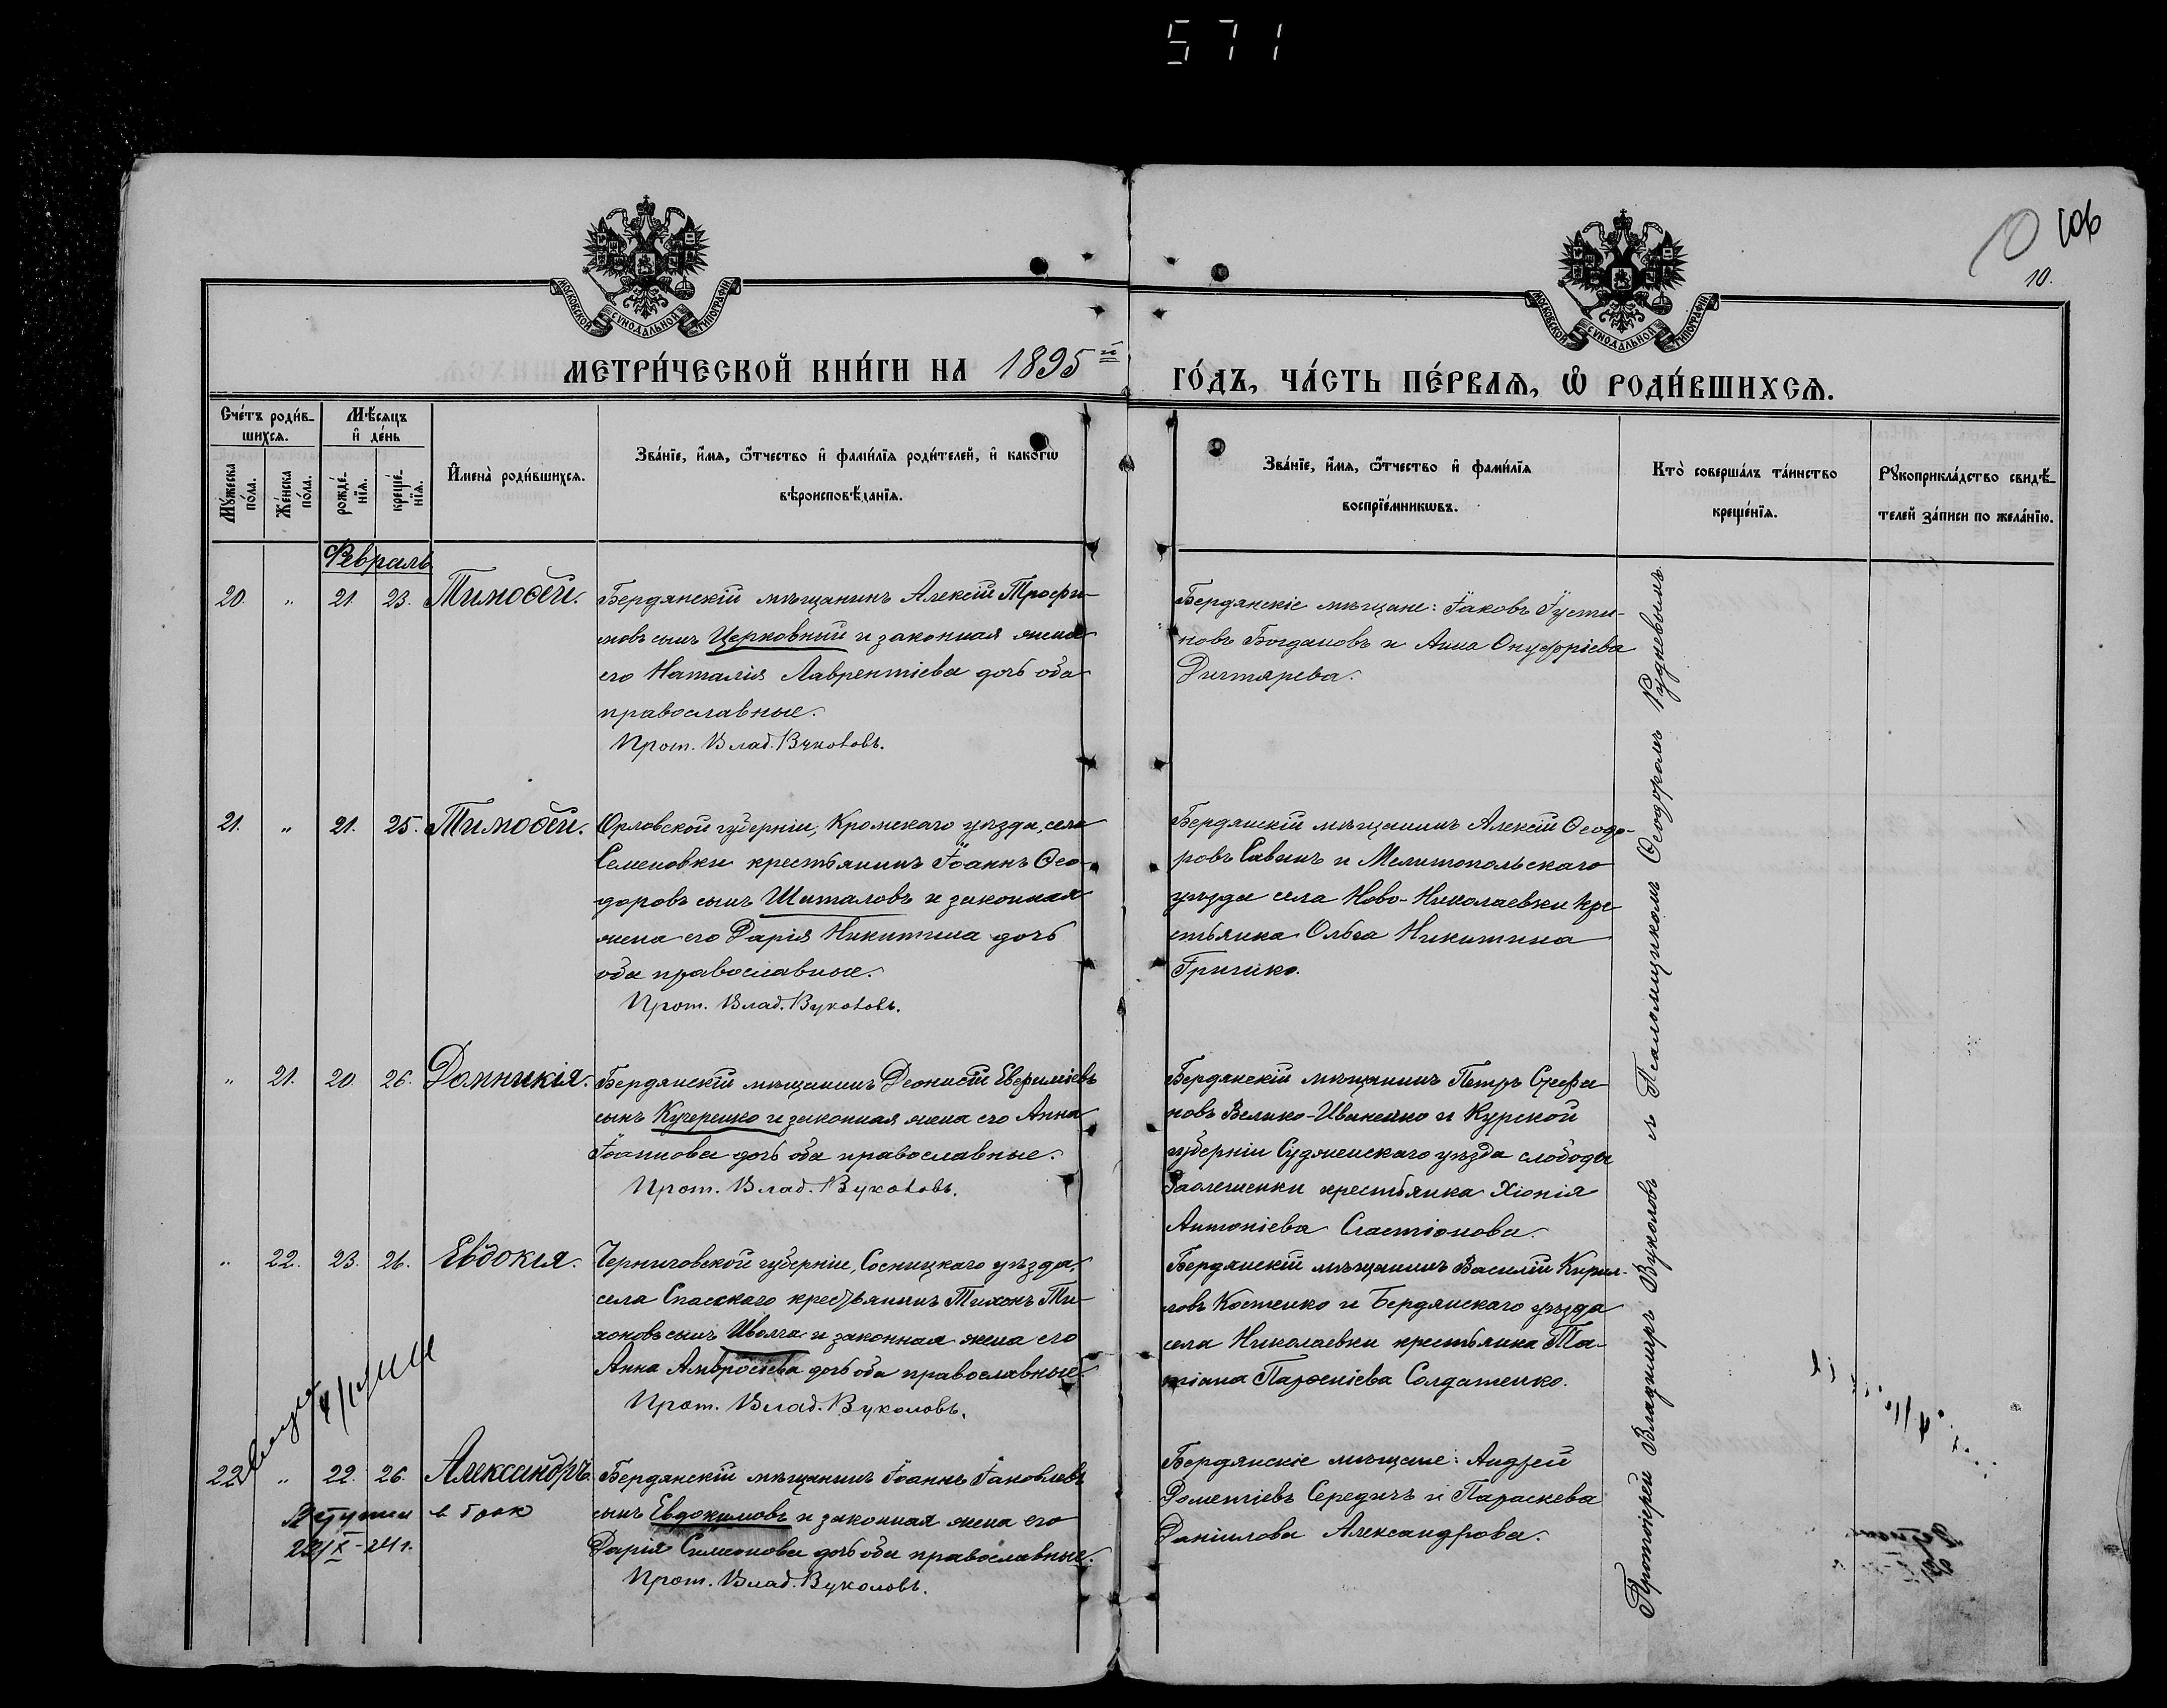 571
106
10.
МОСКОВСКОЙ СѴНОДАЛЬНОЙ ТИПОГРАФІИ
МОСКОВСКОЙ СѴНОДАЛЬНОЙ ТИПОГРАФІИ
МЕТРИ́ЧЕСКОЙ КНИ́ГИ НА 1895й
ГО́ДЪ, ЧА́СТЬ ПЕ́РВАѦ, Ѽ РОДИ́ВШИХСѦ.
Сче́тъ роди́в-
шихсѧ.
Мꙋ́жеска
по́ла.
Же́нска
по́ла.
Мѣ́сѧцъ
и҆ де́нь
рожде́-
нїѧ.
креще́-
нїѧ.
И҆мена̀ роди́вшихсѧ.
Зва́нїе, и҆́мѧ, ѻ҆́тчество и҆ фами́лїѧ роди́телей, и҆ како́гѡ
вѣроисповѣ́данїѧ.
Зва́нїе, и҆́мѧ, ѻ҆́тчество и҆ фами́лїѧ
воспрїе́мникѡвъ.
Кто̀ соверша́лъ та́инство
креще́нїѧ.
Рꙋкоприкла́дство свидѣ́-
телей за́писи по жела́нїю.
Февраль
20. " 21. 23. Тимоѳей.
Бердянскій мѣщанинъ Алексій Трофи-
мовъ сынъ Церковный и законная жена
его Наталія Лаврентіева дочь оба
православные.
Прот. Влад. Вуколовъ.
Бердянскіе мѣщане: Іаковъ Іусти-
новъ Богдановъ и Анна Онуфріева
Дигтярева.
21. " 21. 25. Тимоѳей.
Орловской губерніи, Кромскаго уѣзда, села
Семеновки крестьянинъ Іоаннъ Ѳео-
доровъ сынъ Шаталовъ и законная
жена его Дарія Никитина дочь
оба православные.
Прот. Влад. Вуколовъ.
Бердянскій мѣщанинъ Алексій Ѳеодо-
ровъ Савинъ и Мелитопольскаго
уѣзда села Ново-Николаевки кре
стьянка Ольга Никитина
Гришко.
" 21. 20. 26. Домникія.
Бердянскій мѣщанинъ Діонисій Евфиміевъ
сынъ Кучеренко и законная жена его Анна
Іоаннова дочь оба православные.
Прот. Влад. Вуколовъ.
Бердянскій мѣщанинъ Петръ Стефа
новъ Велико-Иваненко и Курской
губерніи Суджанскаго уѣзда слободы
Заолешенки крестьянка Хіонія
Антоніева Сластіонова.
" 22. 23. 26. Евдокія.
Черниговской губерніи, Сосницкаго уѣзда,
села Спасскаго крестьянинъ Тихонъ Ти-
хоновъ сынъ Иволга и законная жена его
Анна Амвросіева дочь оба православные.
Прот. Влад. Вуколовъ.
Бердянскій мѣщанинъ Василій Кирил-
ловъ Костенко и Бердянскаго уѣзда
села Николаевки крестьянка Та-
тіана Парѳеніева Солдатенко.
22. " 22. 26. Александръ.
Бердянскій мѣщанинъ Іоаннъ Іаковлевъ
сынъ Евдокимовъ и законная жена его
Дарія Симеонова дочь оба православные.
Прот. Влад. Вуколовъ.
Бердянскіе мѣщане: Андрей
Дометіевъ Середичъ и Параскева
Даніилова Александрова.
в брак
Протоіерей Владимиръ Вуколовъ и Псаломщикомъ Ѳеодоромъ Рудневымъ.